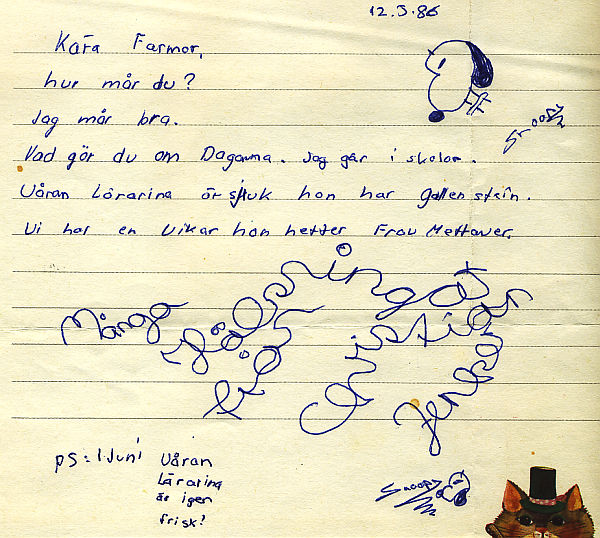 12.5.86
Kära Farmor,
hur mår du?
Jag mår bra.
Snoopy
Vad gör du om Dagarna. Jag går i skolan.
Våran Lärarina är sjuk hon har gallenstein.
Vi har en Vikar hon hetter Frau Mettauer.
Många Hälsningar
från Christian
ps: 1 Juni Våran
Lärarina
är igen
frisk!
Snoopy